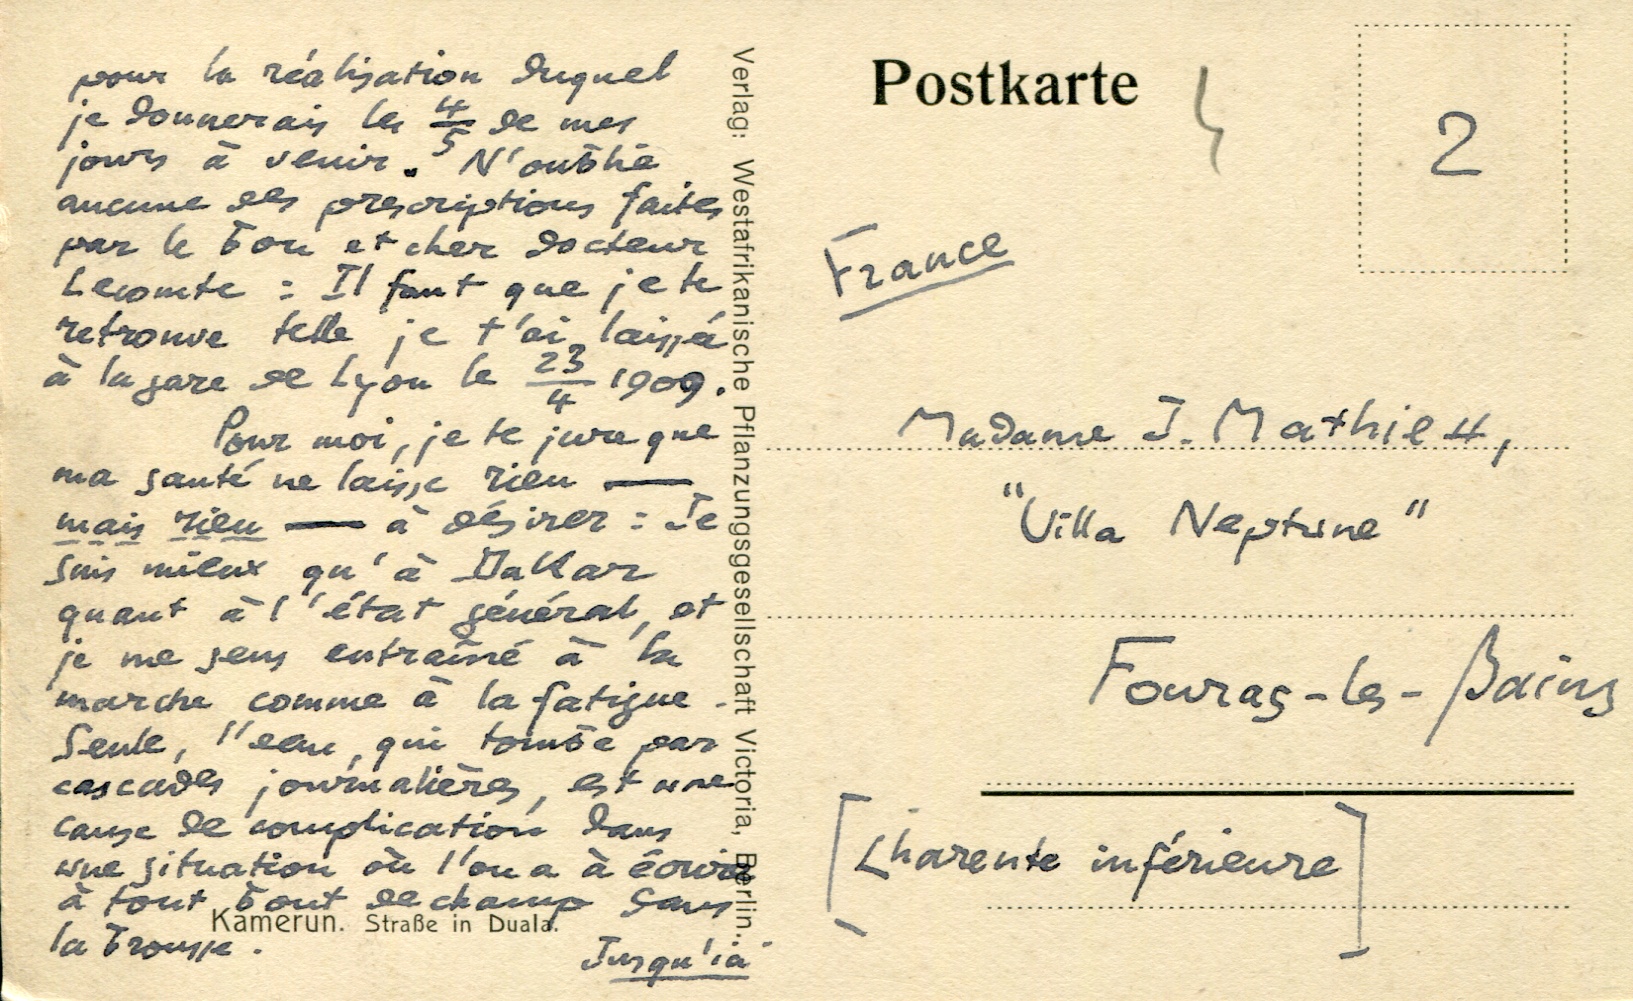 pour la réalisation duquel
je donnerais les 4/5 de mes
jours à venir. N'oublie
aucune des prescriptions faites
par le bon et cher docteur
Lecomte : Il faut que je te
retrouve telle je t'ai laissée
à la gare de Lyon le 23/4 1909.
Pour moi, je te jure que
ma santé ne laisse rien —
mais rien — à désirer : Je
suis mieux qu'à Dakar
quant à l'état général, et
je me sens entraîné à la
marche comme à la fatigue.
Seule, l'eau, qui tombe par
cascades journalières, est une
cause de complication dans
une situation où l'on a à écrire
à tout bout de champ dans
la brousse.
Jusqu'ici
Kamerun. Straße in Duala.
Verlag: Westafrikanische Pflanzungsgesellschaft Victoria, Berlin.
Postkarte
4
2
France
Madame J. Mathieu,
"Villa Neptune"
Fouras-les-Bains
[Charente inférieure]